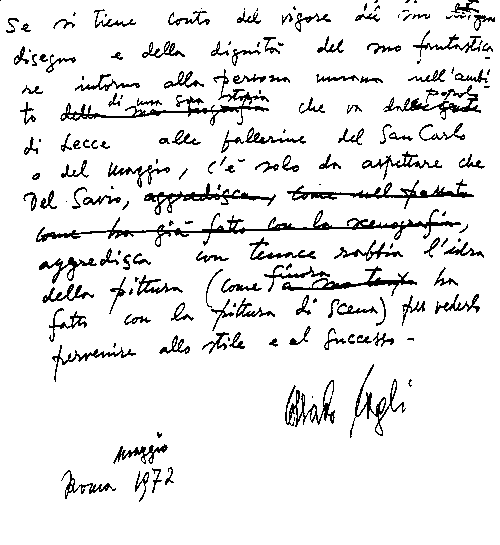 Se si tiene conto del vigore del suo
disegno e della dignità del suo fantastica-
re intorno alla persona umana nell'ambi-
to di una sua che va dal popolo
di Lecce alle ballerine del San Carlo
o del Maggio, c'è solo da aspettare che
Del Savio, aggredisca, come nel passato
come ha già fatto con la scenografia,
aggredisca con tenace rabbia l'idra
della pittura (come finora ha
fatto con la pittura di scena) per vederlo
pervenire allo stile e al successo -
Corrado Cagli
maggio
Roma 1972